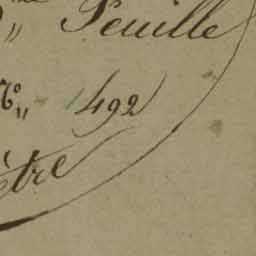 Feuille
N° 1492
ètre